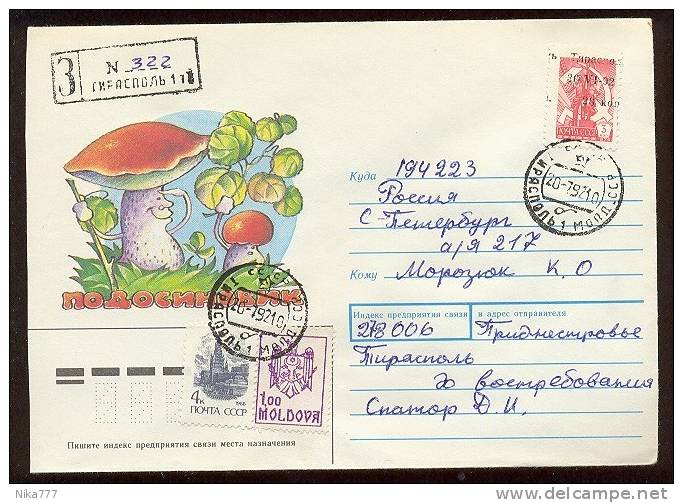 З
N 322
ТИРАСПОЛЬ 1
ъ Тираспо
20 VI-92
коп
ПОЧТА СССР
3
СССР
ТИРАСПОЛЬ 1 МОЛД. ССР
20-7.9210
Куда
194223
Россия
С-Петербург
а/я 217
Кому
Морозюк К. О
ПОДОСИНОВИК
Индекс предприятия связи
и адрес отправителя
278006
Приднестровье
Тирасполь
до востребования
Спатор Д.И.
СССР
ТИРАСПОЛЬ 1 МОЛД. ССР
20-7.9210
4к
1988
ПОЧТА СССР
1.00
MOLDOVA
Пишите индекс предприятия связи места назначения
Nika777
delcampe.net